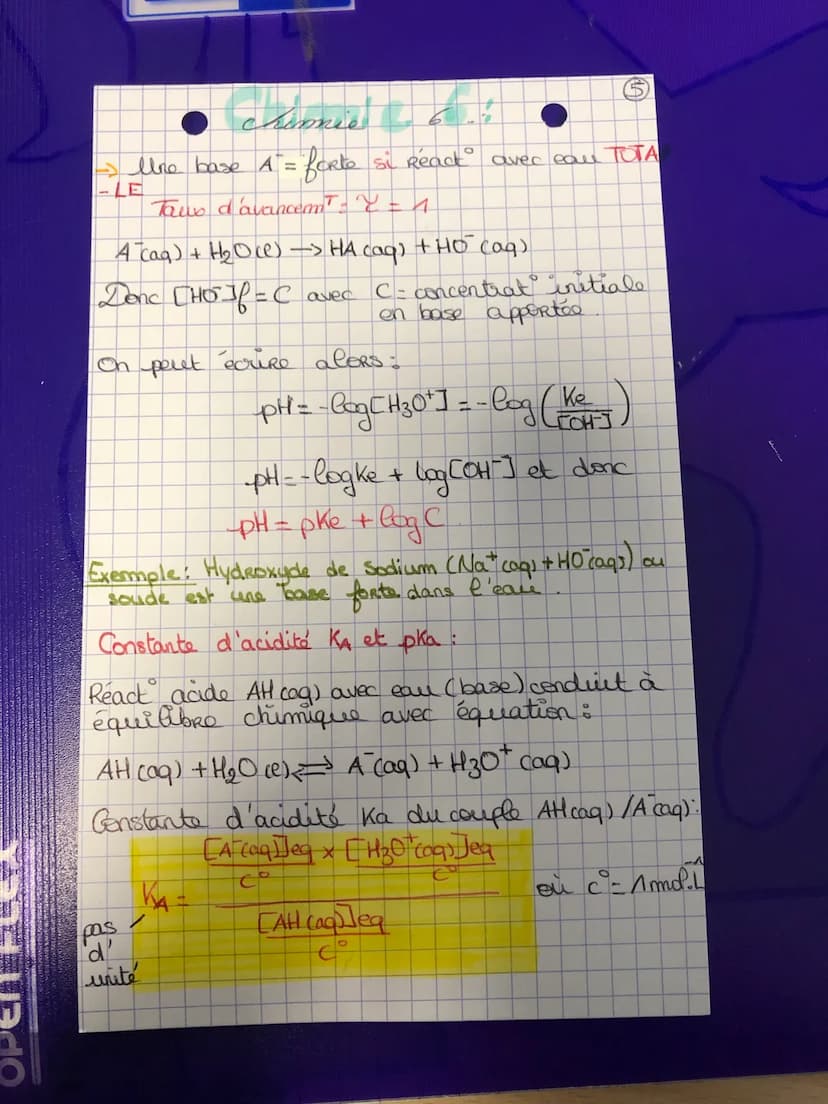 ⑤
Chimie 6 :
→ Une base A⁻ = forte si Réact° avec eau TOTA
- LE
Taux d'avancemᵀ = γ = 1
A⁻(aq) + H₂O(l) → HA(aq) + HO⁻(aq)
Donc [HO⁻]f = C avec C = concentrat° initiale
en base apportée.
On peut écrire alors :
pH = -log[H₃O⁺] = -log(Ke/[OH⁻])
pH = -logKe + log[OH⁻] et donc
pH = pKe + logC
Exemple : Hydroxyde de sodium (Na⁺(aq) + HO⁻(aq)) ou
soude est une base forte dans l'eau.
Constante d'acidité KA et pKa :
Réact° acide AH(aq) avec eau (base) conduit à
équilibre chimique avec équation :
AH(aq) + H₂O(l) ⇌ A⁻(aq) + H₃O⁺(aq)
Constante d'acidité Ka du couple AH(aq)/A⁻(aq) :
[A⁻(aq)]eq × [H₃O⁺(aq)]eq
C° C°
KA = où C° = 1mol.L⁻¹
[AH(aq)]eq
C°
pas
d'
unité
OPEN FLEX